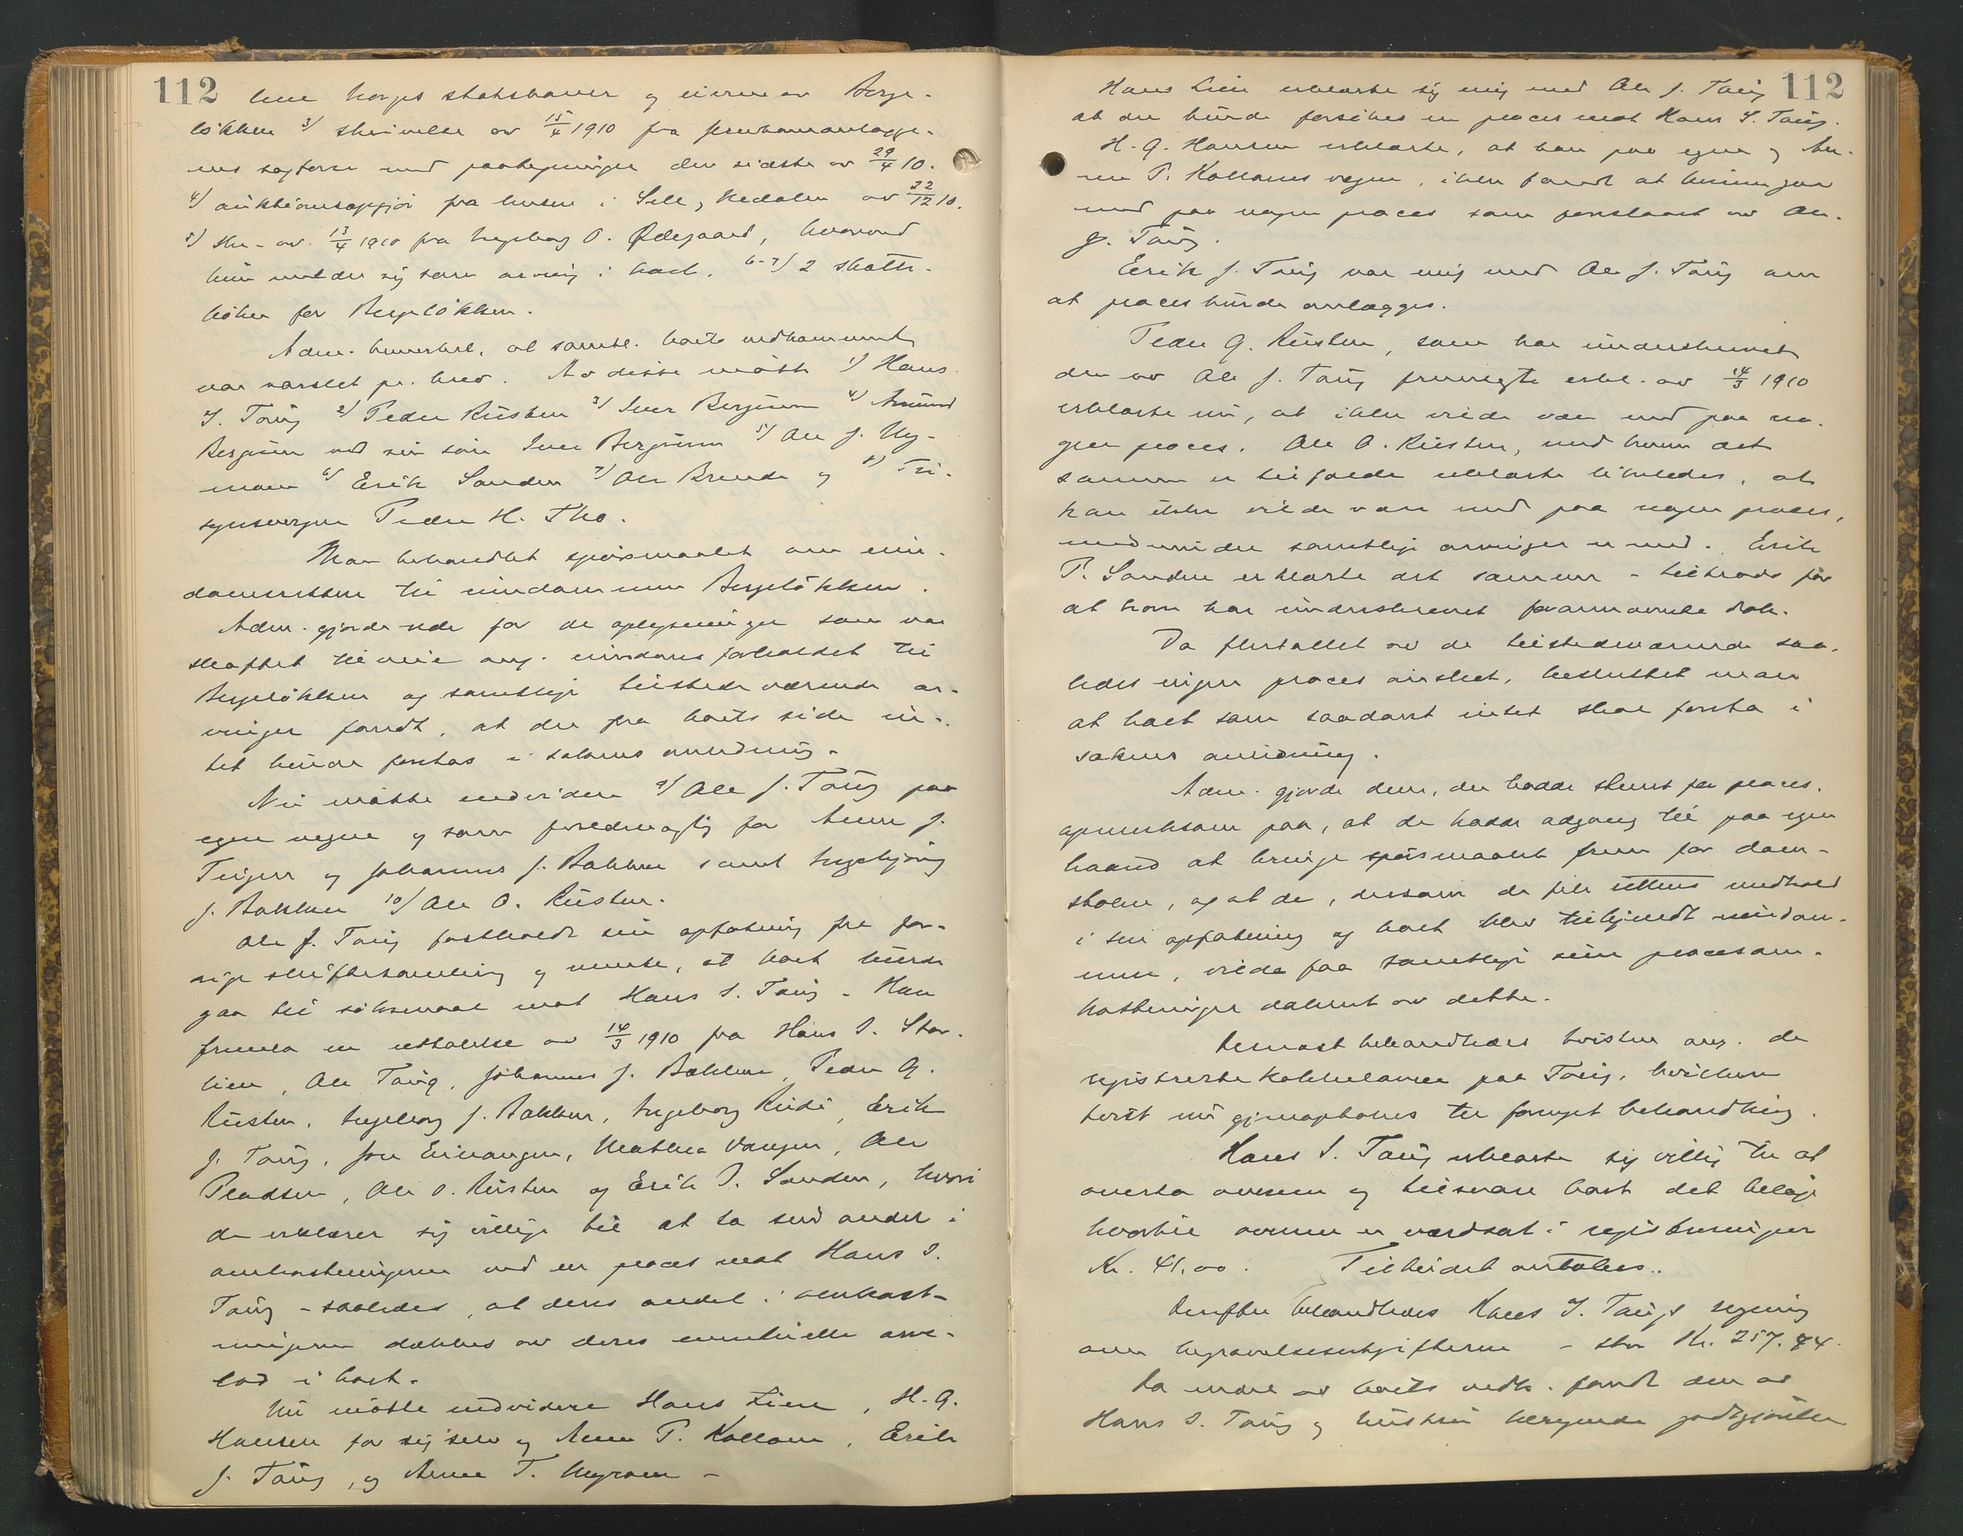 112
lem Norges statsbaner og eieren av Berge-
løkken 3/ skrivelse av 15/4 1910 fra jernbaneanlægge-
nes sagfører med paategninger den sidste av 29/4 10.
4/ auktionsopgjør fra lensm. i Sell, Hedalen av 22/12 10.
5/ Skr. av 13/4 1910 fra Ingeborg O. Ødegaard, hvorved
hun melder sig som arving i boet. 6-7/ 2 skatte-
bøker for Bergeløkken.
Adm. bemerket, at samtl. boets vedkommende
var varslet pr. brev. Av disse møtte 1/ Hans
I. Taug 2/ Peder Rusten 3/ Iver Bergum 4/ Amund
Bergum ved sin søn Iver Bergum 5/ Ole J. Ny-
moen 6/ Erik Sanden 7/ Ole Brende og 8/ Til-
synsvergen Peder H. Tho.
Man behandlet spørsmaalet om eien-
domsretten til eiendommen Bergeløkken.
Adm. gjorde rede for de oplysninger som var
skaffet tilveie ang. eiendomsforholdet til
Bergeløkken og samtlige tilstedeværende ar-
vinger fandt, at der fra boets side in-
tet burde foretas i sakens anledning.
Nu møtte endvidere 9/ Ole J. Taug paa
egne vegne og som fuldmægtig for Anne J.
Teigen og Johannes J. Bakken samt Ingebjørg
J. Bakken 10/ Ole O. Rusten.
Ole J. Taug fastholdt sin opfatning fra for-
rige skiftesamling og mente, at boet burde
gaa til søksmaal mot Hans I. Taug. Han
fremla en uttalelse av 14/3 1910 fra Hans I. Stor-
lien, Ole Taug, Johannes J. Bakken, Peder G.
Rusten, Ingeborg J. Bakken, Ingeborg Rudi, Erik
J. Taug, Jon Eivangen, Mathea Vangen, Ole
Pladsen, Ole O. Rusten og Erik P. Sanden, hvori
de erklærer sig villige til at ta sin andel i
omkostningerne ved en proces mot Hans I.
Taug - saaledes, at deres andel i omkost-
ningerne dækkes av deres eventuelle arve-
lod i boet.
Nu møtte endvidere Hans Lien, H. G.
Hansen for sig selv og Anne P. Kollom, Erik
J. Taug, og Anne T. Myrom -
112
Hans Lien erklærte sig enig med Ole J. Taug
at der burde forsøkes en proces mot Hans I. Taug.
H. G. Hansen erklærte, at han paa egne og An-
ne P. Kolloms vegne, ikke fandt at kunne gaa
med paa nogen proces som foreslaaet av Ole
J. Taug.
Erik J. Taug var enig med Ole J. Taug om
at proces burde anlægges.
Peder G. Rusten, som har underskrevet
den av Ole J. Taug fremlagte erkl. av 14/3 1910
erklærte nu, at ikke vilde være med paa no-
gen proces. Ole O. Rusten, med hvem det
samme er tilfælde erklærte likeledes, at
han ikke vilde være med paa nogen proces,
medmindre samtlige arvinger er med. Erik
P. Sanden erklærte det samme - tiltrods for
at han har underskrevet forannævnte dok.
Da flertallet av de tilstedeværende saa-
ledes ingen proces ønsket, besluttet man
at boet som saadant intet skal foreta i
sakens anledning.
Adm. gjorde dem, der hadde stemt for proces,
opmerksom paa, at de hadde adgang til paa egen
haand at bringe spørsmaalet frem for dom-
stolene, og at de, dersom de fik rettens medhold
i sin opfatning og boet blev tilkjendt eiendom-
men, vilde faa samtlige sine procesom-
kostninger dækket av dette.
Dernæst behandledes tvisten ang. de
registrerte kakkelovner paa Taug, hvilken
tvist nu gjenoptokes til fornyet behandling.
Hans I. Taug erklærte sig villig til at
overta ovnene og tilsvare boet det beløp
hvortil ovnene er værdsat i registreringen
Kr. 41.00. Tilbudet antokes.
Derefter behandledes Hans I. Taugs regning
over begravelsesutgifterne - stor Kr. 257.44.
Da endel av boets vedk. fandt den av
Hans I. Taug og hustru beregnede godtgjørelse